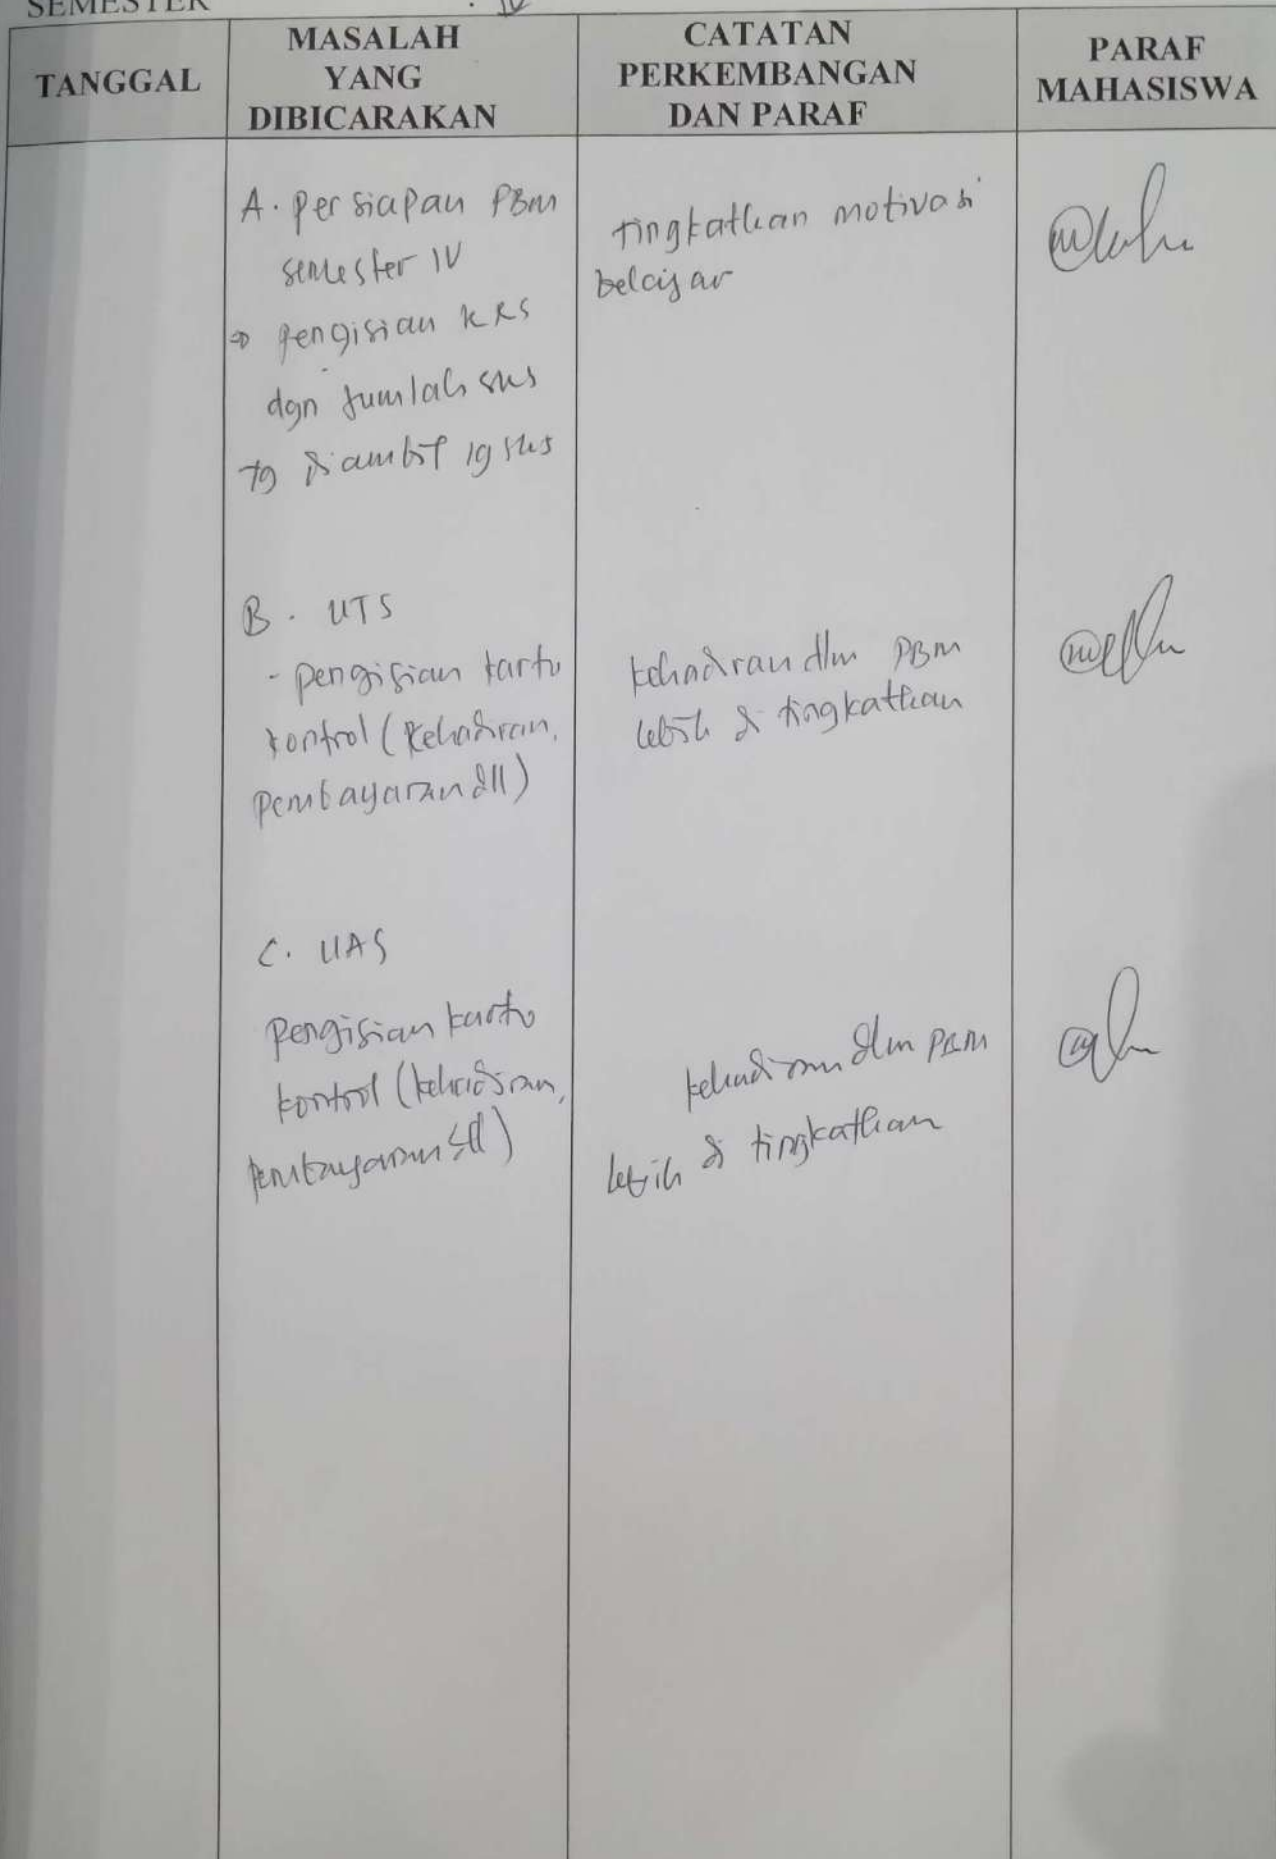 SEMESTER : IV
TANGGAL
MASALAH
YANG
DIBICARAKAN
CATATAN
PERKEMBANGAN
DAN PARAF
PARAF
MAHASISWA
A. Persiapan PBM
semester IV
⇒ pengisian KRS
dgn jumlah sks
yg diambil 19 sks
tingkatkan motivasi
belajar
B. UTS
- pengisian kartu
kontrol (kehadiran,
pembayaran dll)
kehadiran dlm PBM
lebih di tingkatkan
C. UAS
pengisian kartu
kontrol (kehadiran,
pembayaran dll)
kehadiran dlm PBM
lebih di tingkatkan